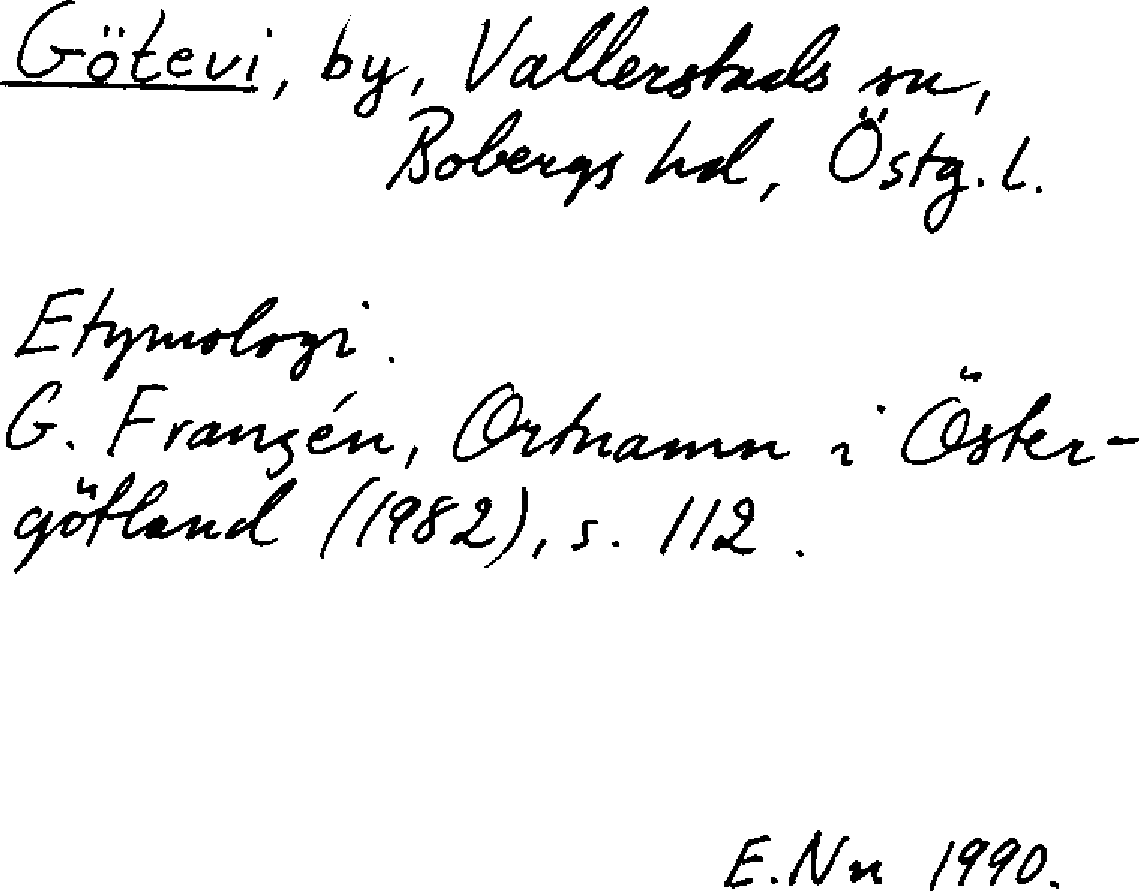 Götevi, by, Vallerstads sn,
Bobergs hd, Östg. l.
Etymologi.
G. Franzén, Ortnamn i Öster-
götland (1982), s. 112.
E. Nn 1990.